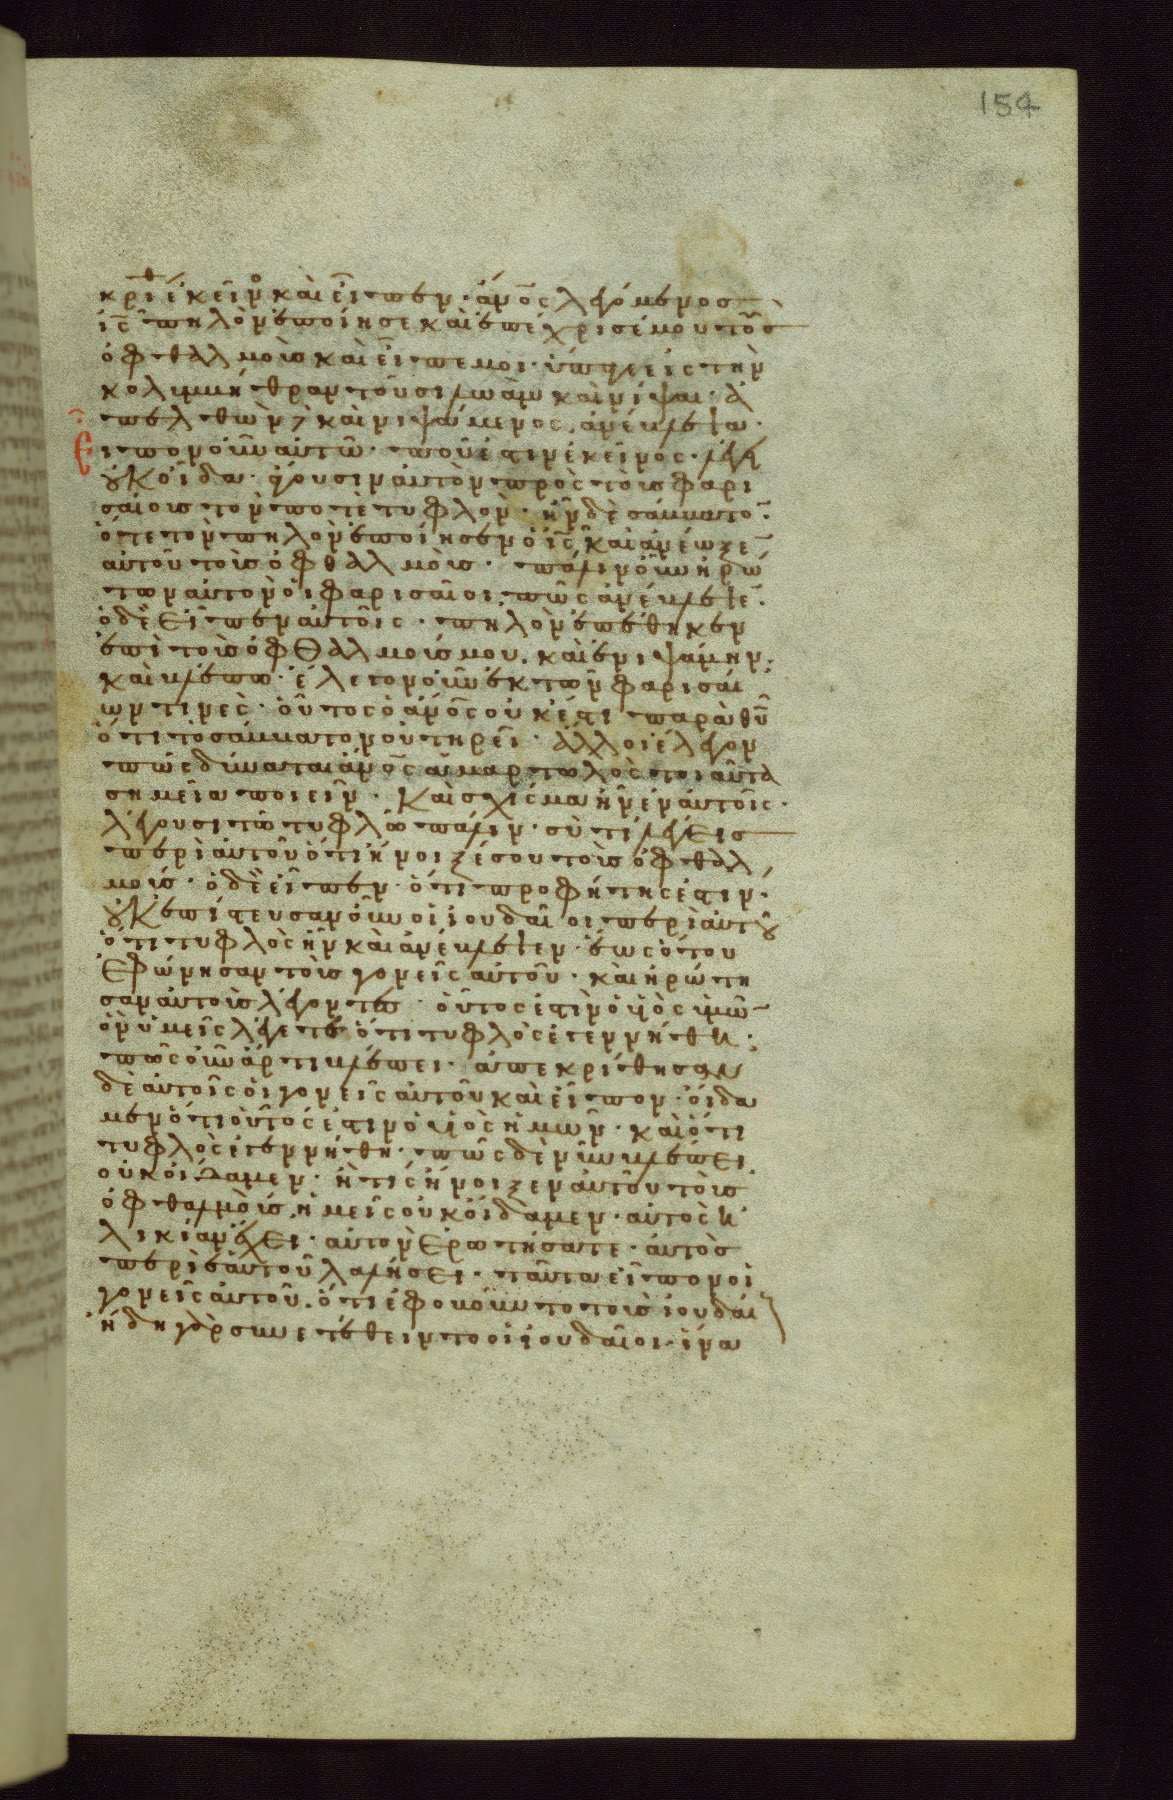 154
κριθ ἐκεῖνος καὶ εἶπεν· ἄνος λεγόμενος
ις πηλὸν ἐποίησε καὶ ἐπέχρισέ μου τοὺς
ὀφθαλμοὺς καὶ εἶπε μοι· ὕπαγε εἰς τὴν
κολυμβήθραν τοῦ σιλωὰμ καὶ νίψαι· ἀ
πελθὼν καὶ νιψάμενος, ἀνέβλεψα·
Εἶπον οὖν αὐτῶ· ποῦ ἐστιν ἐκεῖνος· λέγει
οὐκ οἶδα· ἄγουσιν αὐτὸν πρὸς τοὺς φαρι
σαίους τόν ποτὲ τυφλὸν· ἦν δὲ σάββατον·
ὅτε τὸν πηλὸν ἐποίησεν ὁ ις καὶ ἀνέωξεν
αὐτοῦ τοὺς ὀφθαλμοὺς· πάλιν οὖν ἠρώ
των αὐτὸν οἱ φαρισαῖοι· πῶς ἀνέβλεψεν·
ὁ δὲ εἶπεν αὐτοῖς· πηλὸν ἐπέθηκεν
ἐπὶ τοὺς ὀφθαλμούς μου. καὶ ἐνιψάμην·
καὶ βλέπω· ἔλεγον οὖν ἐκ τῶν φαρισαί
ων τινὲς· οὗτος ὁ ἄνος οὐκ ἔστι παρὰ θυ
ὅτι τὸ σάββατον οὐ τηρεῖ· ἄλλοι ἔλεγον
πῶς δύναται ἄνος ἁμαρτωλὸς τοιαῦτα
σημεῖα ποιεῖν· καὶ σχίσμα ἦν ἐν αὐτοῖς·
λέγουσι τῶ τυφλῶ πάλιν· σὺ τί λέγεις
περὶ αὐτοῦ ὅτι ἤνοιξέ σου τοὺς ὀφθαλ
μούς· ὁ δὲ εἶπεν· ὅτι προφήτης ἐστιν·
οὐκ ἐπίστευσαν οὖν οἱ ἰουδαῖοι περὶ αὐτοῦ
ὅτι τυφλὸς ἦν καὶ ἀνέβλεψεν· ἕως ὅτου
ἐφώνησαν τοὺς γονεῖς αὐτοῦ· καὶ ἠρώτη
σαν αὐτοὺς λέγοντες· οὗτος ἐστὶν ὁ υἱὸς ὑμῶν
ὃν ὑμεῖς λέγετε ὅτι τυφλὸς ἐγεννήθη·
πῶς οὖν ἄρτι βλέπει· ἀπεκρίθησαν
δὲ αὐτοῖς οἱ γονεῖς αὐτοῦ καὶ εἶπον· οἴδα
μεν ὅτι οὗτός ἐστιν ὁ υἱὸς ἡμῶν· καὶ ὅτι
τυφλὸς ἐγεννήθη· πῶς δὲ νῦν βλέπει
οὐκ οἴδαμεν· ἢ τίς ἤνοιξεν αὐτοῦ τοὺς
ὀφθαλμοὺς, ἡμεῖς οὐκ οἴδαμεν· αὐτὸς ἡ
λικίαν ἔχει· αὐτὸν ἐρωτήσατε· αὐτὸς
περὶ ἑαυτοῦ λαλήσει· ταῦτα εἶπον οἱ
γονεῖς αὐτοῦ. ὅτι ἐφοβοῦντο τοὺς ἰουδαί
ἤδη γὰρ συνετέθειντο οἱ ἰουδαῖοι· ἵνα